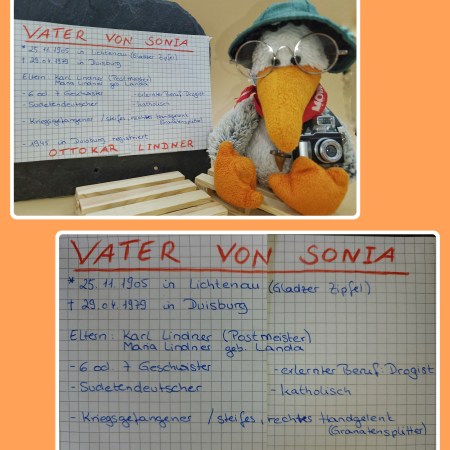 VATER VON SONIA
* 25.11.1905 in Lichtenau (Gladzer Zipfel)
† 29.04.1979 in Duisburg
Eltern: Karl Lindner (Postmeister)
Maria Lindner geb. Landa
- 6 od. 7 Geschwister - erlernter Beruf: Drogist
- Sudetendeutscher - katholisch
- Kriegsgefangener / steifes, rechtes Handgelenk
(Granatensplitter)
- 1945 in Duisburg
OTTOKAR LINDNER
VATER VON SONIA
* 25.11.1905 in Lichtenau (Gladzer Zipfel)
† 29.04.1979 in Duisburg
Eltern: Karl Lindner (Postmeister)
Maria Lindner geb. Landa
- 6 od. 7 Geschwister - erlernter Beruf: Drogist
- Sudetendeutscher - katholisch
- Kriegsgefangener / steifes, rechtes Handgelent
(Granatensplitter)